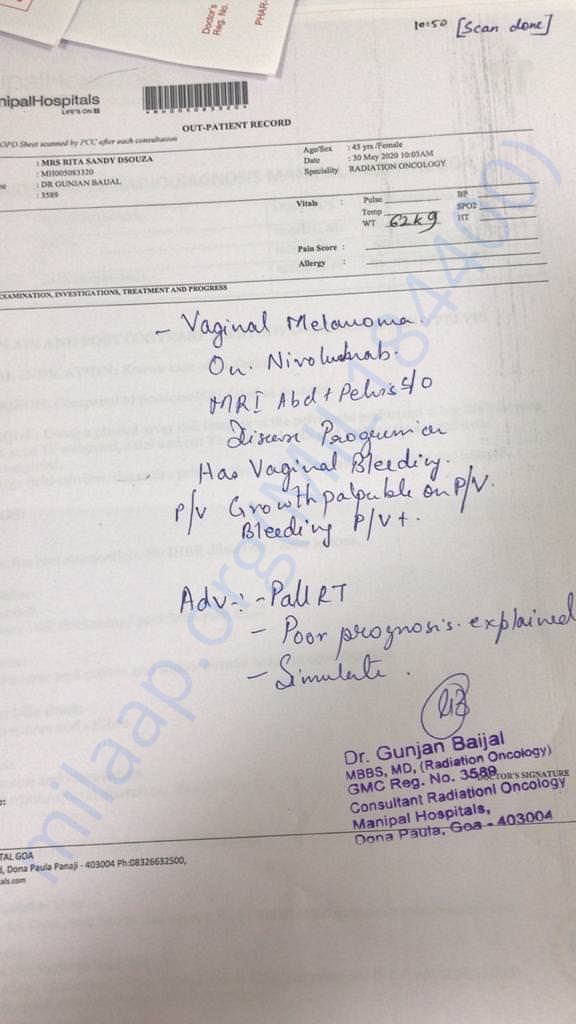 10:50 [Scan done]
Doctor's
Reg. No.
PHAR
nipalHospitals
LIFE'S ON
OUT-PATIENT RECORD
OPD Sheet scanned by PCC after each consultation
: MRS RITA SANDY DSOUZA
: MH005083320
: DR GUNJAN BAIJAL
: 3589
Age/Sex : 45 yrs /Female
Date : 30 May 2020 10:03AM
Speciality RADIATION ONCOLOGY
Vitals : Pulse BP
Temp SPO2
WT 62kg HT
Pain Score :
Allergy :
EXAMINATION, INVESTIGATIONS, TREATMENT AND PROGRESS
- Vaginal Melanoma.
On. Nivolumab.
MRI Abd + Pelvis S/O
Disease Progression
Has Vaginal Bleeding.
P/V Growth palpable on P/V.
Bleeding P/V +.
Adv :- - Pall RT
- Poor prognosis explained
- Simulate.
Dr. Gunjan Baijal
MBBS, MD, (Radiation Oncology)
GMC Reg. No. 3589
DOCTOR'S SIGNATURE
Consultant Radiationl Oncology
Manipal Hospitals,
Dona Paula, Goa - 403004
TAL GOA
, Dona Paula Panaji - 403004 Ph:08326632500,
als.com
milaap.org(MIL184400)